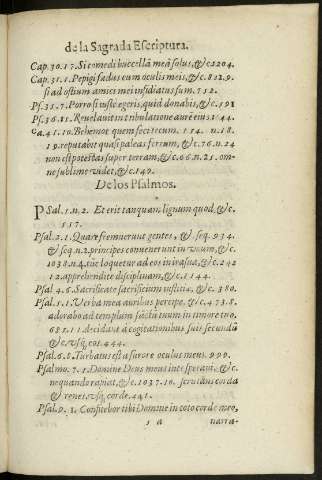 de la Sagrada Escriptura.
Cap. 30.17. Si comedi buccellã meã solus, &c. 1204.
Cap. 31.1. Pepigi fœdus cum oculis meis, &c. 812.9.
si ad ostium amici mei insidiatus sum. 712.
Ps. 31.7. Porro si iuste egeris, quid donabis, &c. 191
Ps. 36.11. Revelavit in tribulatione aurẽ eius 1144.
Ca. 41.10. Behemot quem feci tecum. 114. n. 18.
19. reputabit quasi paleas ferrum, &c. 76. n. 24
non est potestas super terram, &c. 66. n. 21. om-
ne sublime videt, &c. 149.
De los Psalmos.
PSal. 1. n. 2. Et erit tanquam lignum quod, &c.
557.
Psal. 2.1. Quare fremuerunt gentes, & seq. 934.
& seq. n. 2. principes convenerunt in vnum, &c.
1038. n. 4. tũc loquetur ad eos in ira sua, &c. 242
12. apprehendite disciplinam, &c. 1144.
Psal. 4.6. Sacrificate sacrificium iustitiæ, &c. 380.
Psal. 5.1. Verba mea auribus percipe, &c. 473.8.
adorabo ad templum sanctũ tuum in timore tuo,
68 11. decidant à cogitationibus suis secundũ
&c. vsq; eo 1.444.
Psal. 6.8. Turbatus est a furore oculus meus. 999.
Psalmo. 7.1. Domine Deus meus in te speravi, &c.
nequando rapiat, &c. 1037.10. scrutans corda
& renes, vsq; corde. 441.
Psal. 9.1. Confitebor tibi Domine in toto corde meo,
narra-